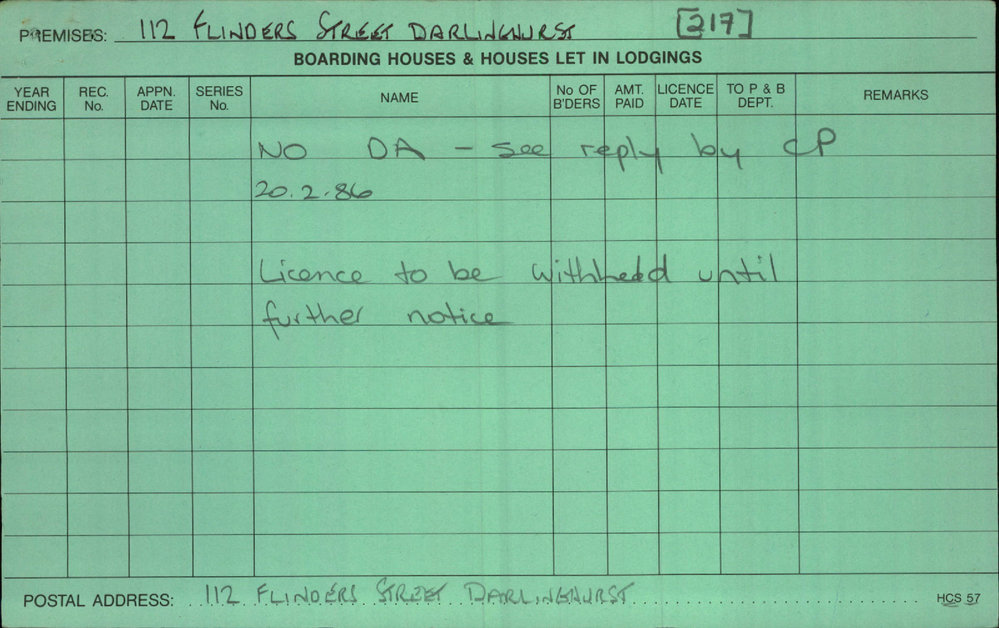 PREMISES: 112 FLINDERS STREET DARLINGHURST [217]
BOARDING HOUSES & HOUSES LET IN LODGINGS
YEAR ENDING REC. No. APPN. DATE SERIES No. NAME No OF B'DERS AMT. PAID LICENCE DATE TO P & B DEPT. REMARKS
NO DA - see reply by CP
20.2.86
Licence to be withheld until
further notice
POSTAL ADDRESS: 112 FLINDERS STREET DARLINGHURST HCS 57